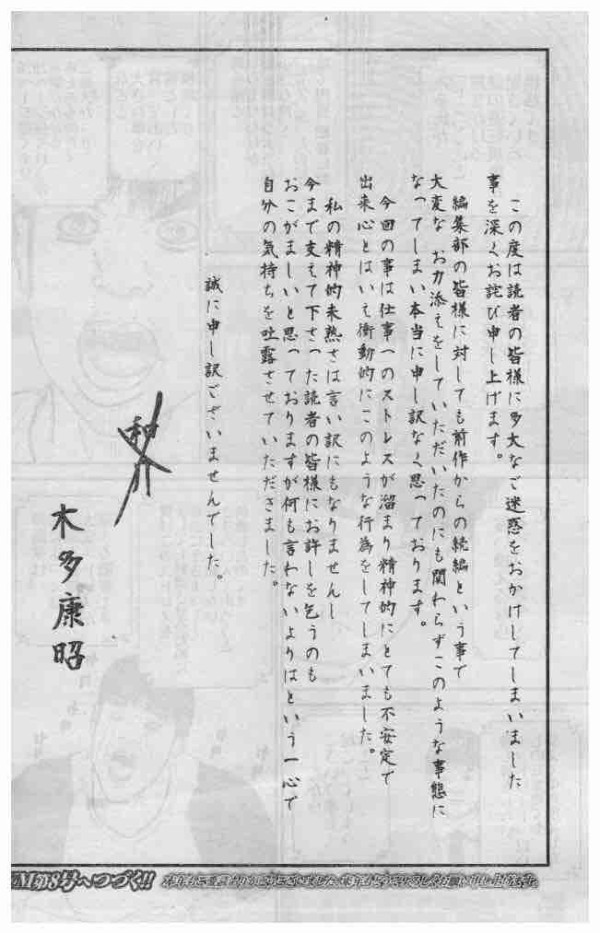 この度は読者の皆様に多大なご迷惑をおかけしてしまいました
事を深くお詫び申し上げます。
編集部の皆様に対しても前作からの続編という事で
大変な お力添えをしていただいたのにも関わらずこのような事態に
なってしまい本当に申し訳なく思っております。
今回の事は仕事へのストレスが溜まり精神的にとても不安定で
出来心とはいえ衝動的にこのような行為をしてしまいました。
私の精神的未熟さは言い訳にもなりませんし
今まで支えて下さった読者の皆様にお許しを乞うのも
おこがましいと思っておりますが何も言わないよりはという一心で
自分の気持ちを吐露させていただきました。
誠に申し訳ございませんでした。
木多康昭
M第8号へつづく!!